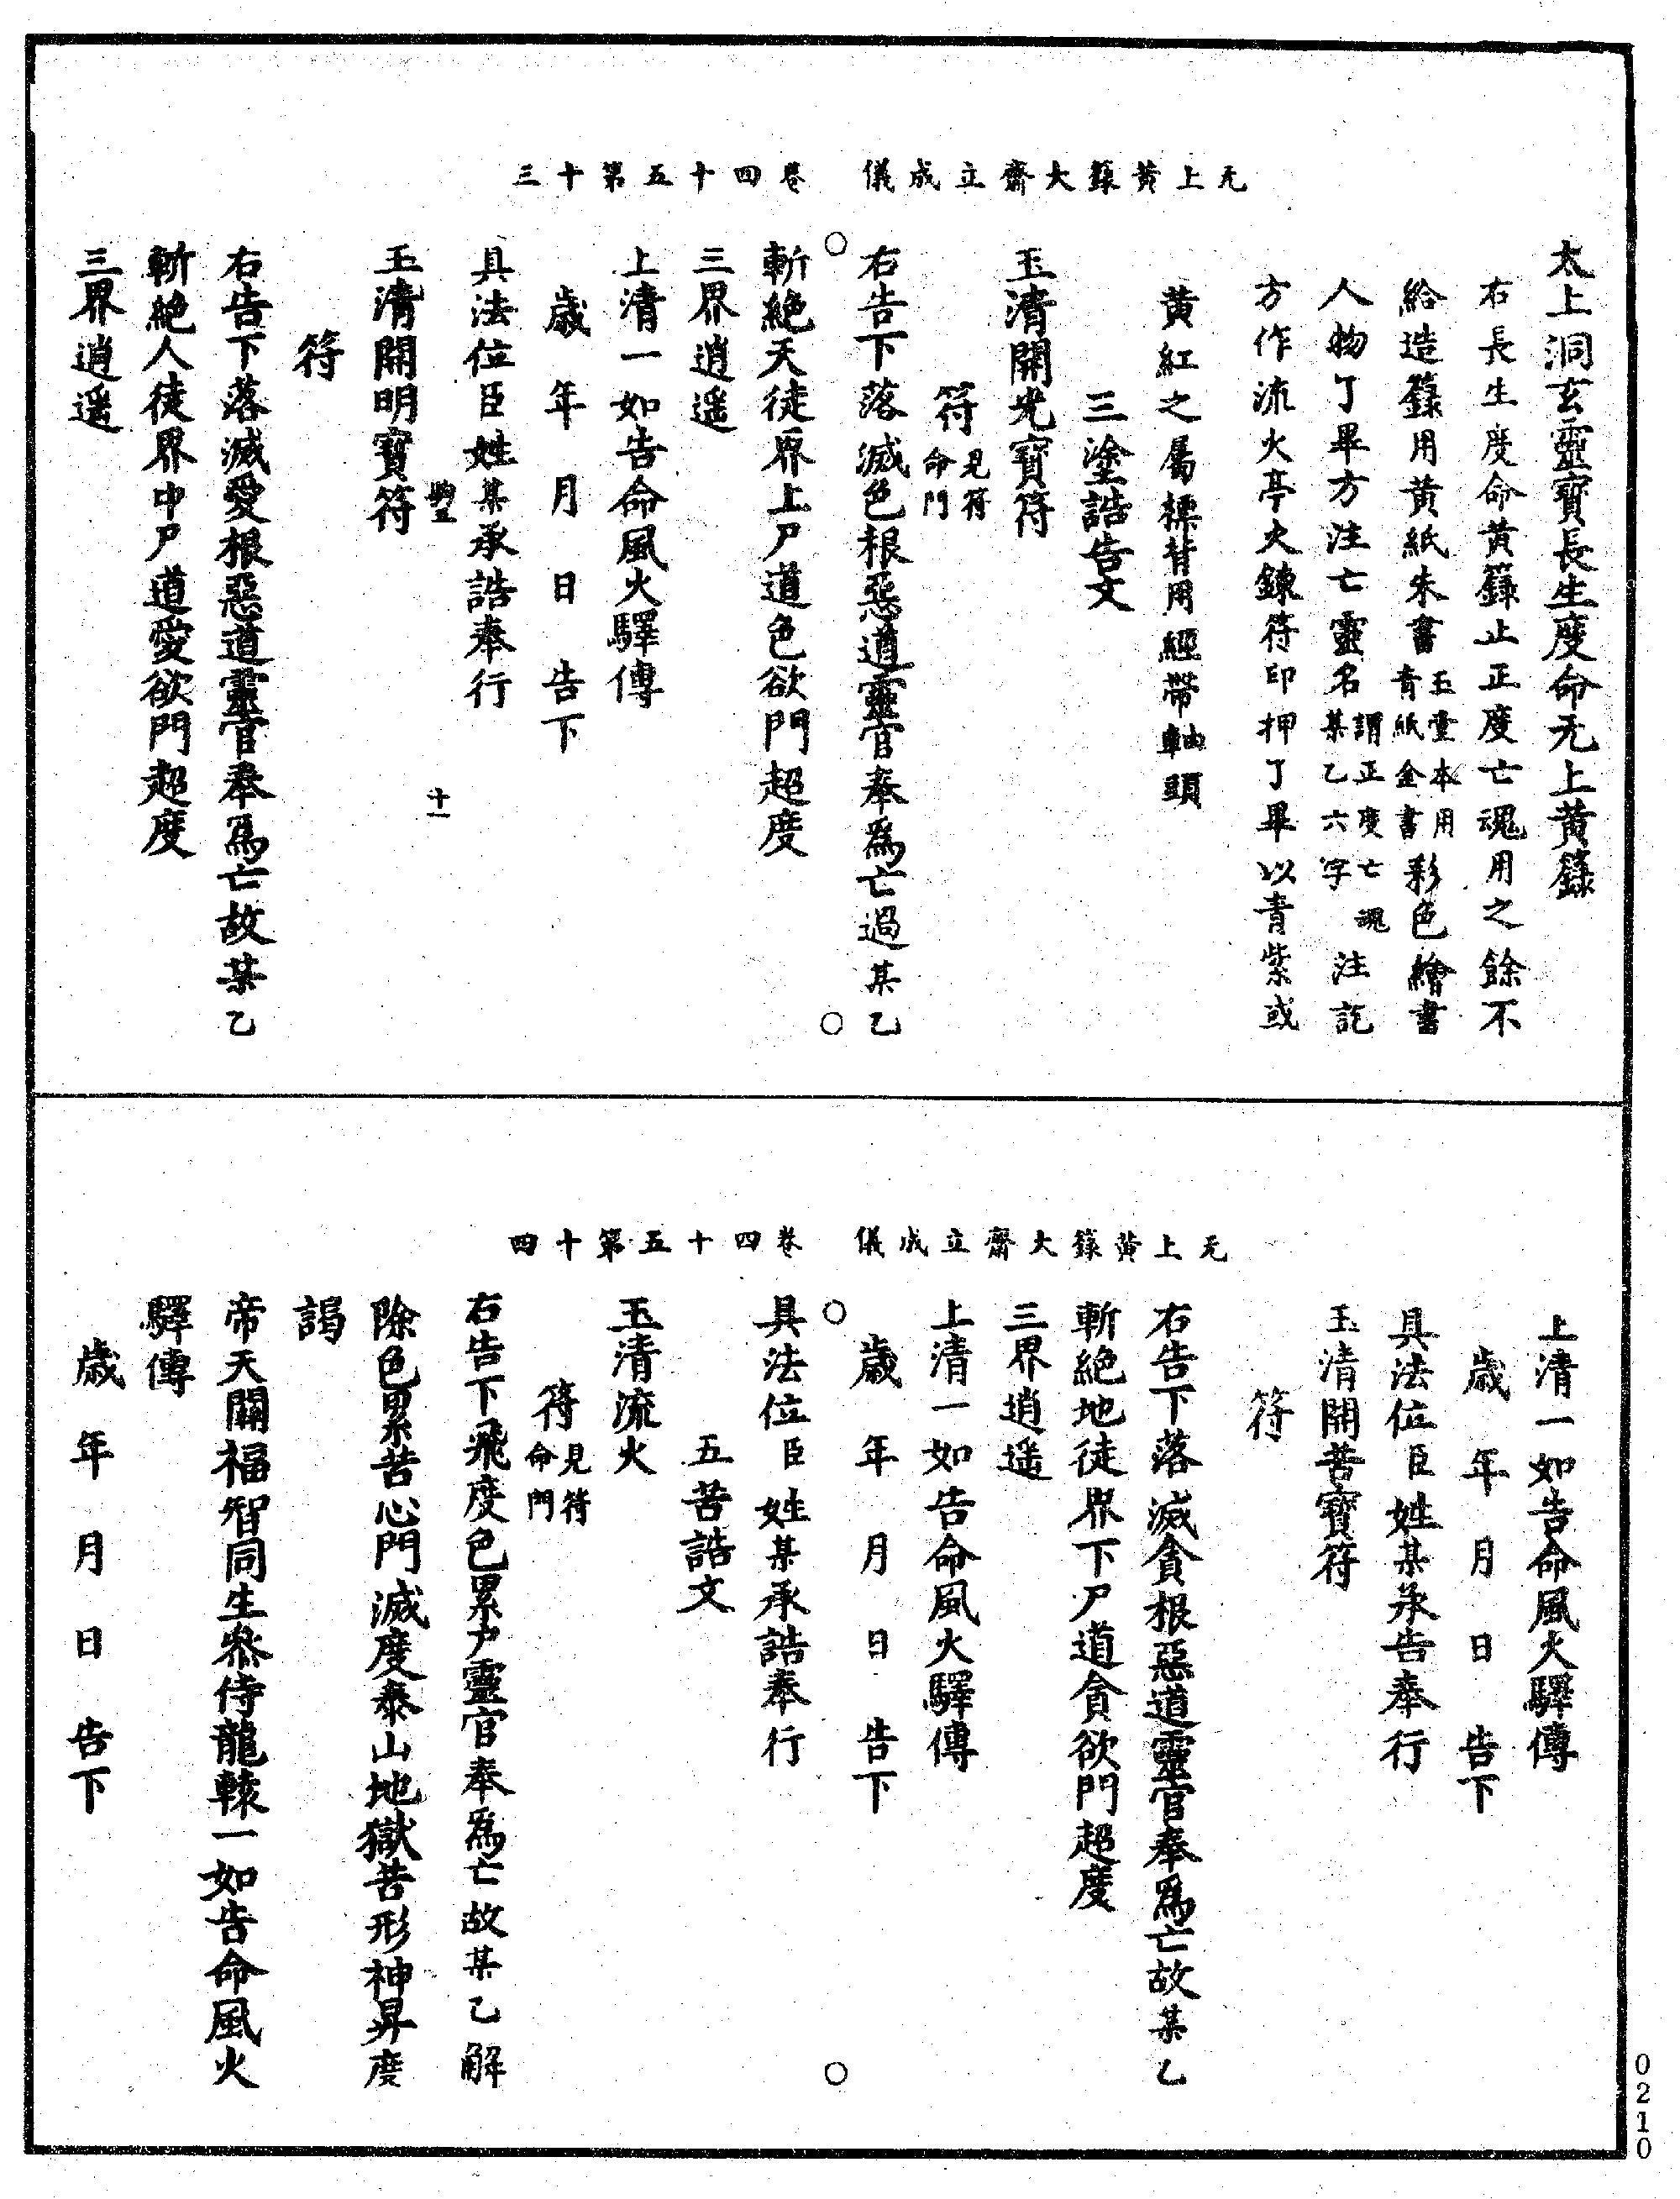 无上黃籙大齋立成儀　卷四十五第十三
太上洞玄靈寶長生度命无上黃籙
右長生度命黃籙止正度亡魂用之餘不
給造籙用黃紙朱書玉堂本用青紙金書彩色繪書
人物了畢方注亡靈名謂正度亡魂某乙六字注訖
方作流火亭火鍊符印押了畢以青紫或
黃紅之屬標背用經帶軸頭
三塗誥告文
玉清開光寶符
符見符命門
右告下落滅色根惡道靈官奉爲亡過某乙
斬絕天徒界上尸道色欲門超度
三界逍遥
上清一如告命風火驛傳
歲　年　月　日　告下
具法位臣姓某承誥奉行
十一
玉清開明寶符
符
右告下落滅愛根惡道靈官奉爲亡故某乙
斬絕人徒界中尸道愛欲門超度
三界逍遥
无上黃籙大齋立成儀　卷四十五第十四
上清一如告命風火驛傳
歲　年　月　日　告下
具法位臣姓某承告奉行
玉清開苦寶符
符
右告下落滅貪根惡道靈官奉爲亡故某乙
斬絕地徒界下尸道貪欲門超度
三界逍遥
上清一如告命風火驛傳
歲　年　月　日　告下
具法位臣姓某承誥奉行
五苦誥文
玉清流火
符見符命門
右告下飛度色累尸靈官奉爲亡故某乙解
除色累苦心門滅度泰山地獄苦形神昇度
謁
帝天開福智同生叅侍龍轅一如告命風火
驛傳
歲　年　月　日　告下
0210